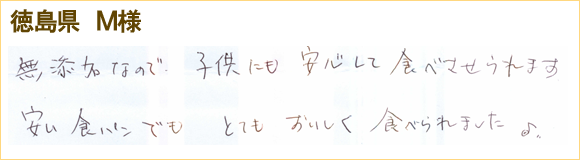 徳島県 M様
無添加なので 子供にも 安心して 食べさせられます
安い食パンでも とても おいしく 食べられました♪